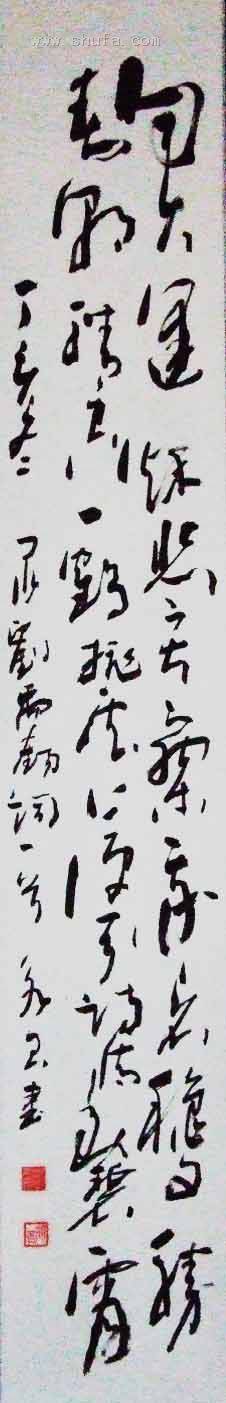 www.shufa.com
自古逢秋悲寂寥我言秋日勝
春朝晴空一鶴排雲上便引詩情到碧霄
丁亥冬 錄劉禹錫詞一首 書